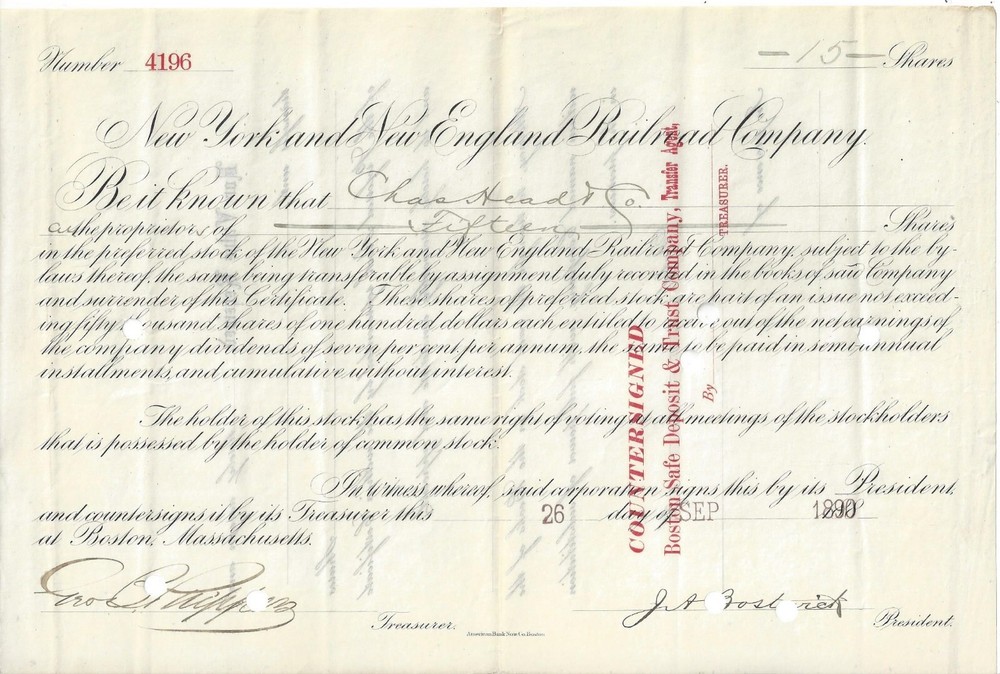 Number 4196 — 15 — Shares
New York and New England Railroad Company.
Be it known that Chas Head & Co.
are the proprietors of — Fifteen — Shares
in the preferred stock of the New York and New England Railroad Company, subject to the by-
laws thereof, the same being transferable by assignment duly recorded in the books of said Company
and surrender of this Certificate. These shares of preferred stock are part of an issue not exceed-
ing fifty thousand shares of one hundred dollars each entitled to receive out of the net earnings of
the company dividends of seven per cent. per annum, the same to be paid in semi-annual
instalments, and cumulative without interest.
The holder of this stock has the same right of voting at all meetings of the stockholders
that is possessed by the holder of common stock.
In witness whereof, said corporation signs this by its President,
and countersigns it by its Treasurer this 26 day of SEP 1890
at Boston, Massachusetts.
Geo B Phippen
Treasurer.
J A Bostwick
President.
American Bank Note Co. Boston.
COUNTERSIGNED
Boston Safe Deposit & Trust Company, Transfer Agent,
By
TREASURER.